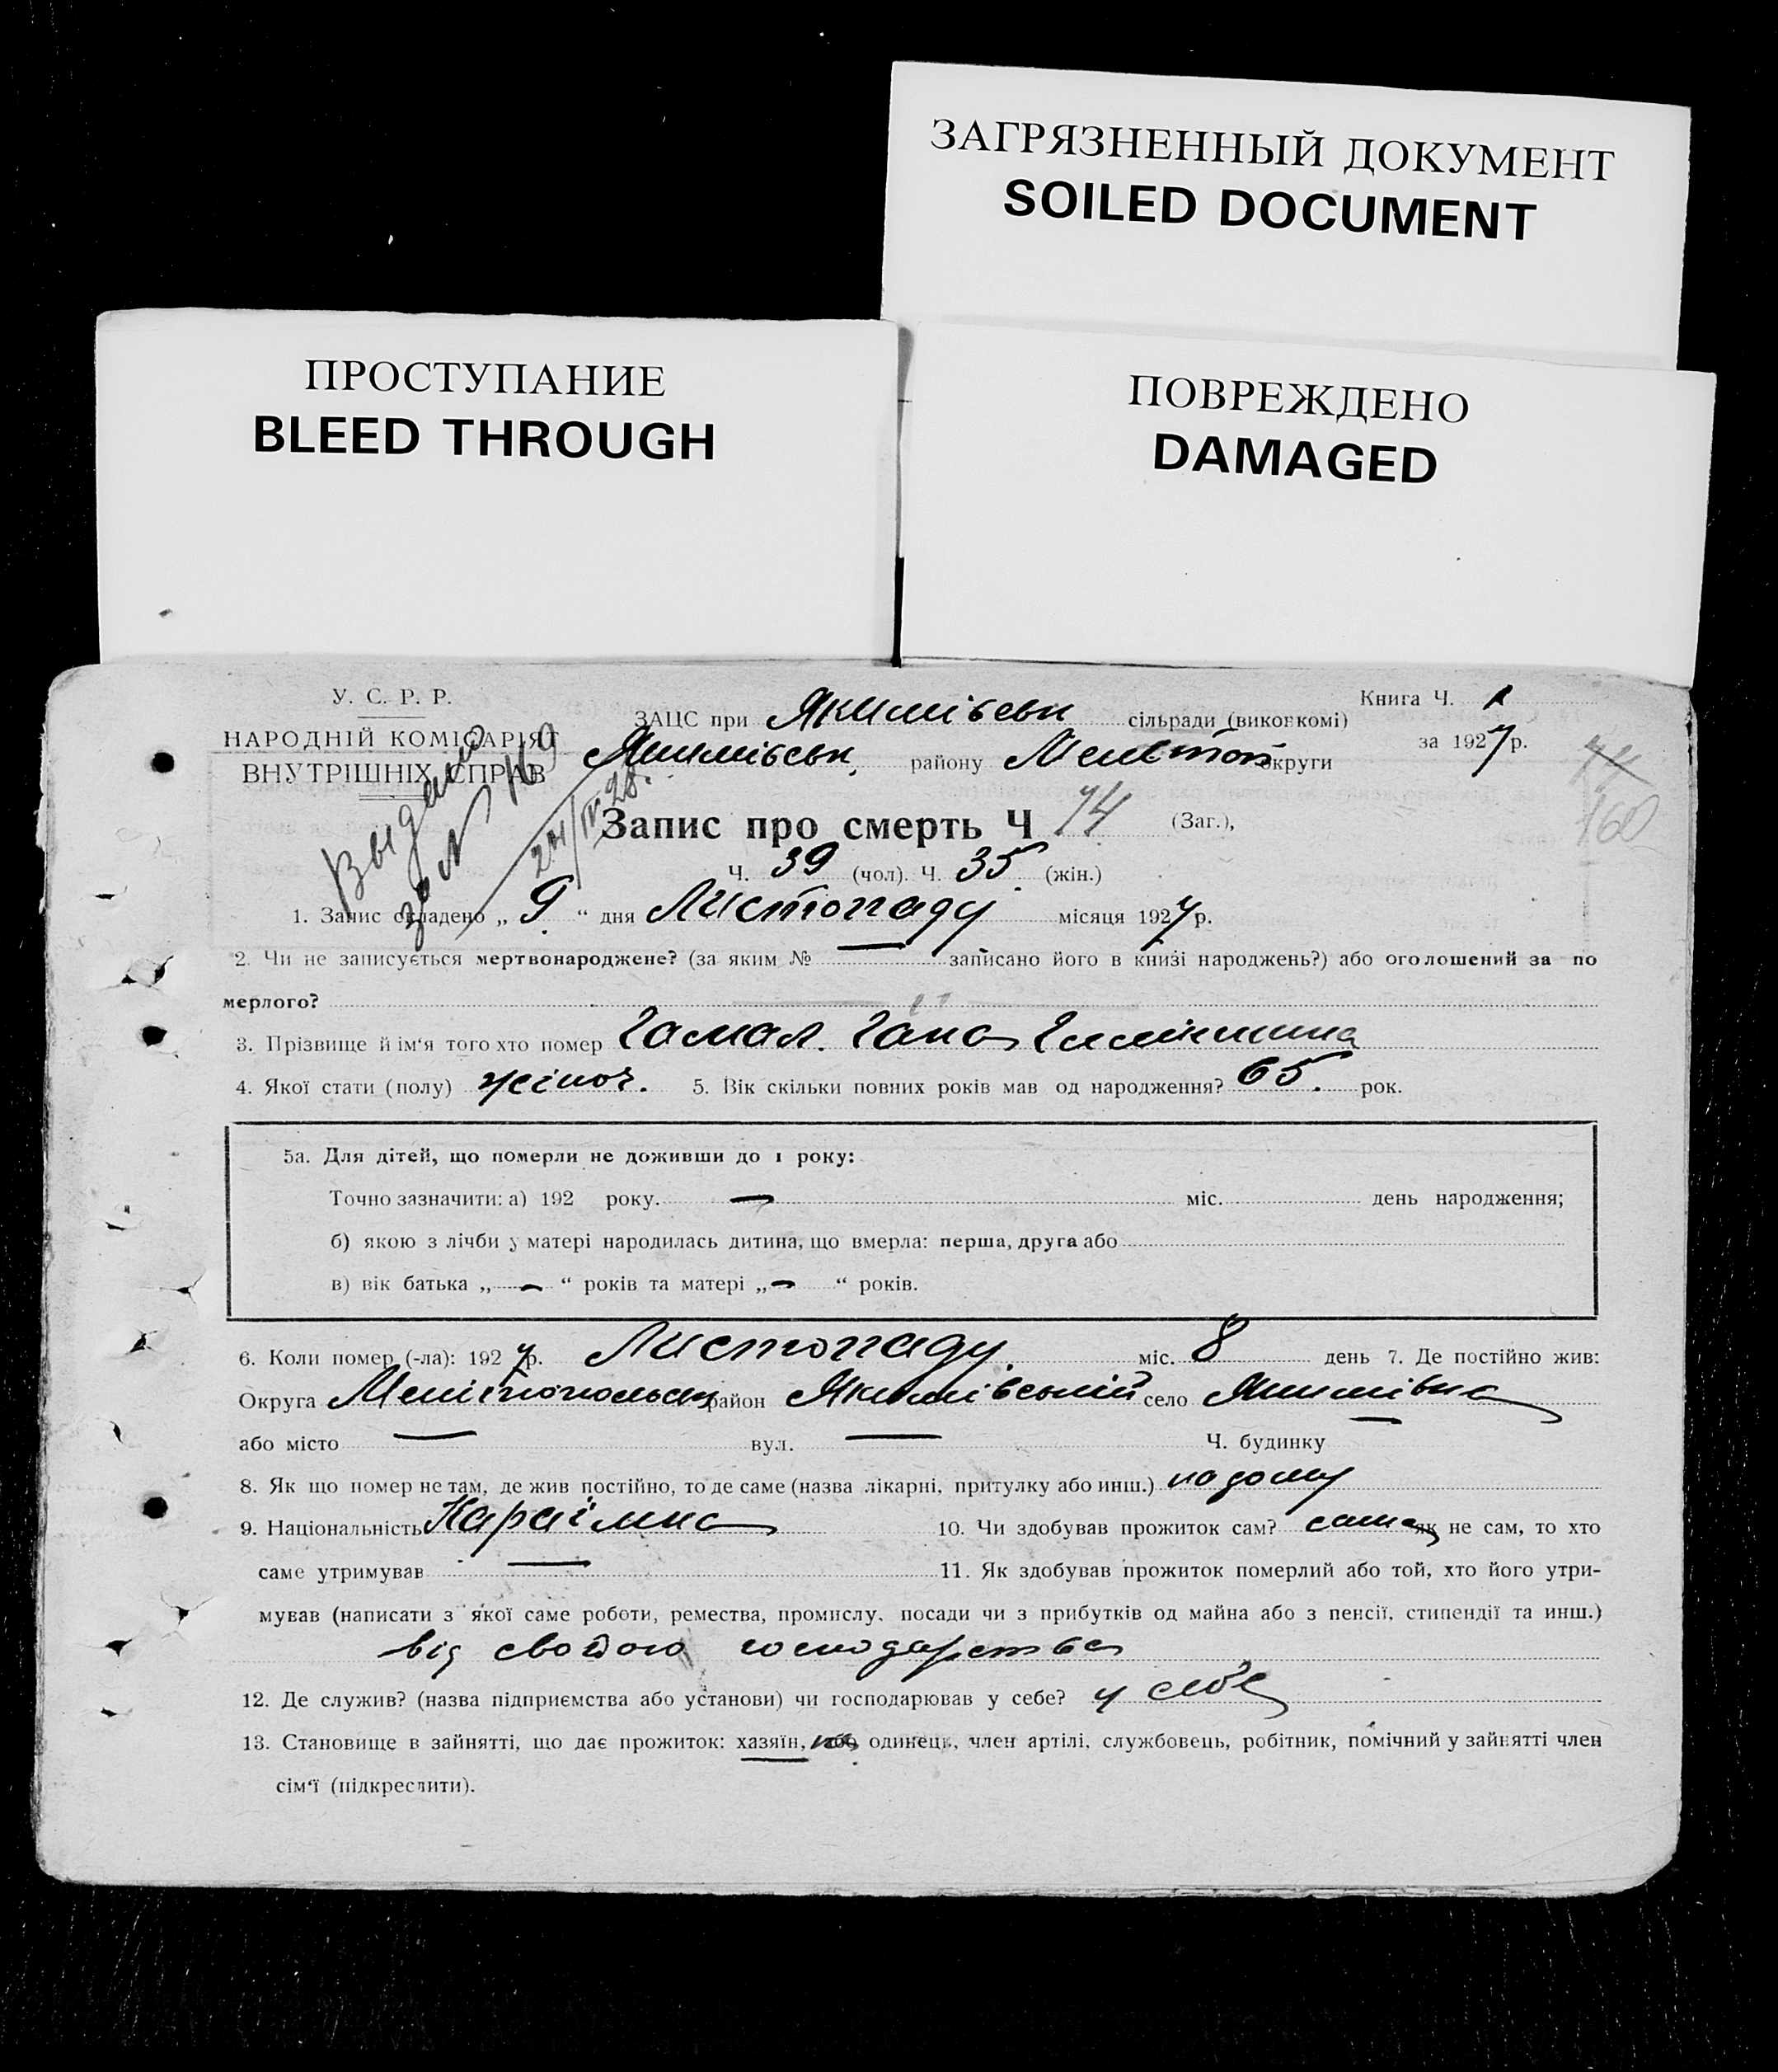 ЗАГРЯЗНЕННЫЙ ДОКУМЕНТ
SOILED DOCUMENT
ПРОСТУПАНИЕ
BLEED THROUGH
ПОВРЕЖДЕНО
DAMAGED
У. С. Р. Р.
НАРОДНІЙ КОМІСАРІЯТ
ВНУТРІШНІХ СПРАВ
Выдано
за №
169
24/IV 28.
ЗАЦС при Якимівськ сільради (виконкомі)
Якимівськ. району Мелітоп округи
Книга Ч. 1
за 1927 р.
74
160
Запис про смерть Ч 74 (Заг.),
Ч. 39 (чол). Ч. 35 (жін.)
1. Запис складено „ 9 “ дня Листопаду місяця 1927 р.
2. Чи не записується мертвонароджене? (за яким № — записано його в книзі народжень?) або оголошений за по
мерлого?
3. Прізвище й ім'я того хто помер Гамал. Гана
4. Якої стати (полу) жіноч. 5. Вік скільки повних років мав од народження? 65. рок.
5а. Для дітей, що померли не доживши до 1 року:
Точно зазначити: а) 192 року. — міс. день народження;
б) якою з лічби у матері народилась дитина, що вмерла: перша, друга або
в) вік батька „ — “ років та матері „ — “ років.
6. Коли помер (-ла): 1927 р. Листопаду. міс. 8 день 7. Де постійно жив:
Округа Мелітопольськ район Якимівський село Якимівка
або місто — вул. — Ч. будинку —
8. Як що помер не там, де жив постійно, то де саме (назва лікарні, притулку або инш.) на дому
9. Національність Караїмка 10. Чи здобував прожиток сам? сама як не сам, то хто
саме утримував — 11. Як здобував прожиток померлий або той, хто його утри-
мував (написати з якої саме роботи, ремества, промислу, посади чи з прибутків од майна або з пенсії, стипендії та инш.)
від свойого господарства
12. Де служив? (назва підприємства або установи) чи господарював у себе? у себе
13. Становище в зайнятті, що дає прожиток: хазяїн, або одинець, член артілі, службовець, робітник, помічний у зайнятті член
сім'ї (підкреслити).